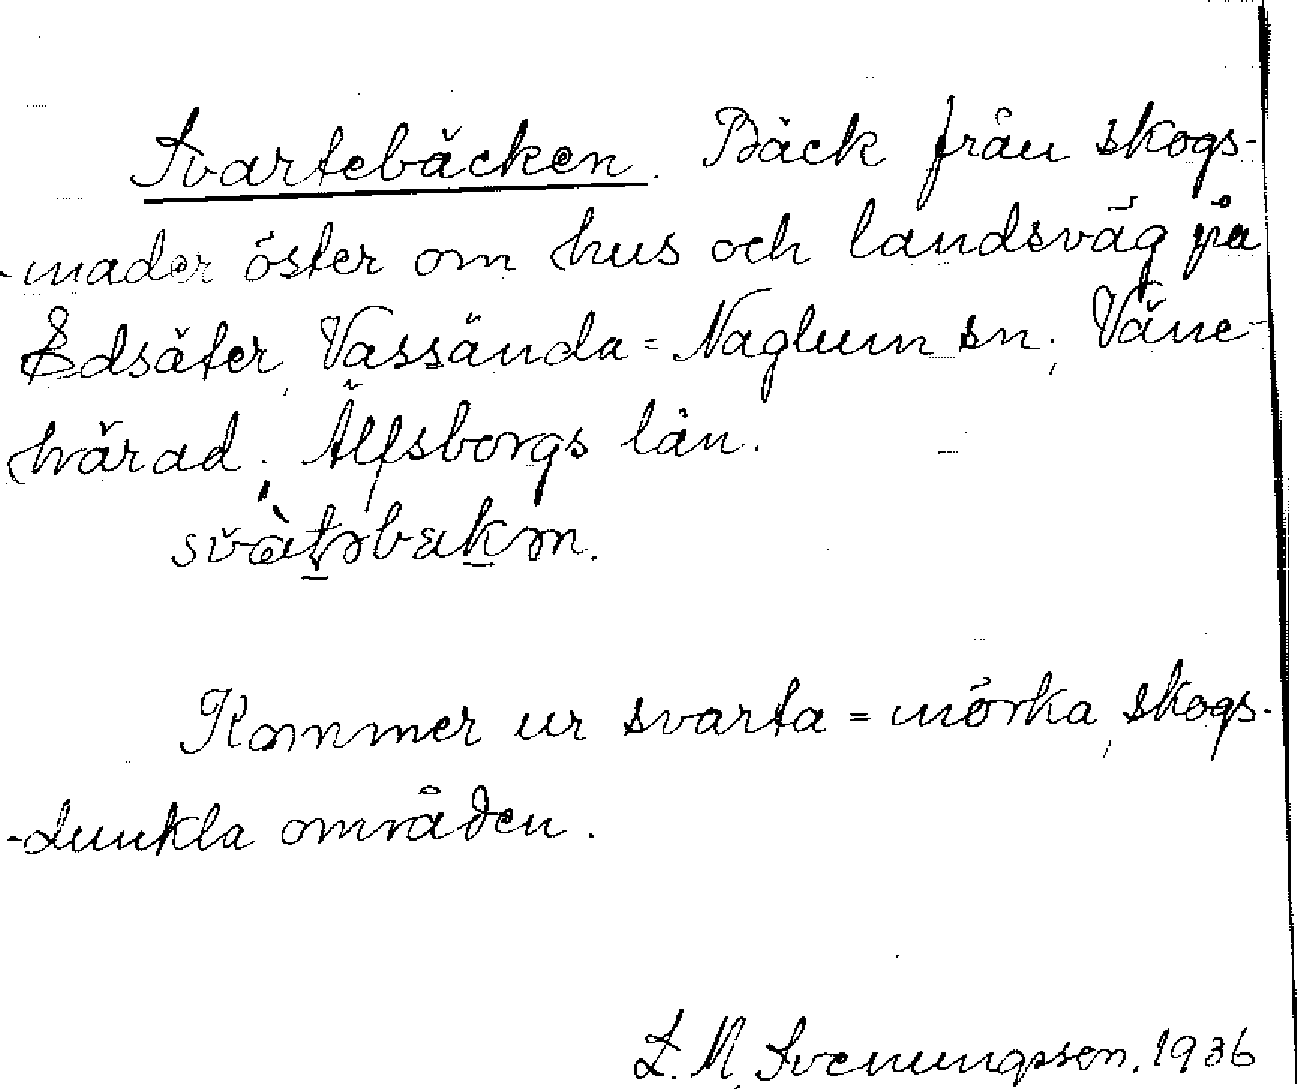 Svartebäcken. Bäck från skogs-
-mader öster om hus och landsväg på
Edsäter, Vassända=Naglum sn; Väne-
härad, Älfsborgs län.
Kommer ur svarta = mörka, skogs-
-dunkla områden.
L. M. Svenungsson. 1936